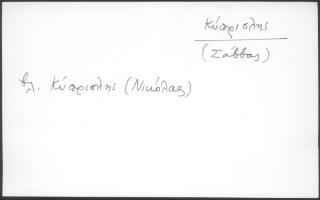 Κύπρισλης
(Σάββας)
βλ. Κύπρισλης (Νικόλαος)